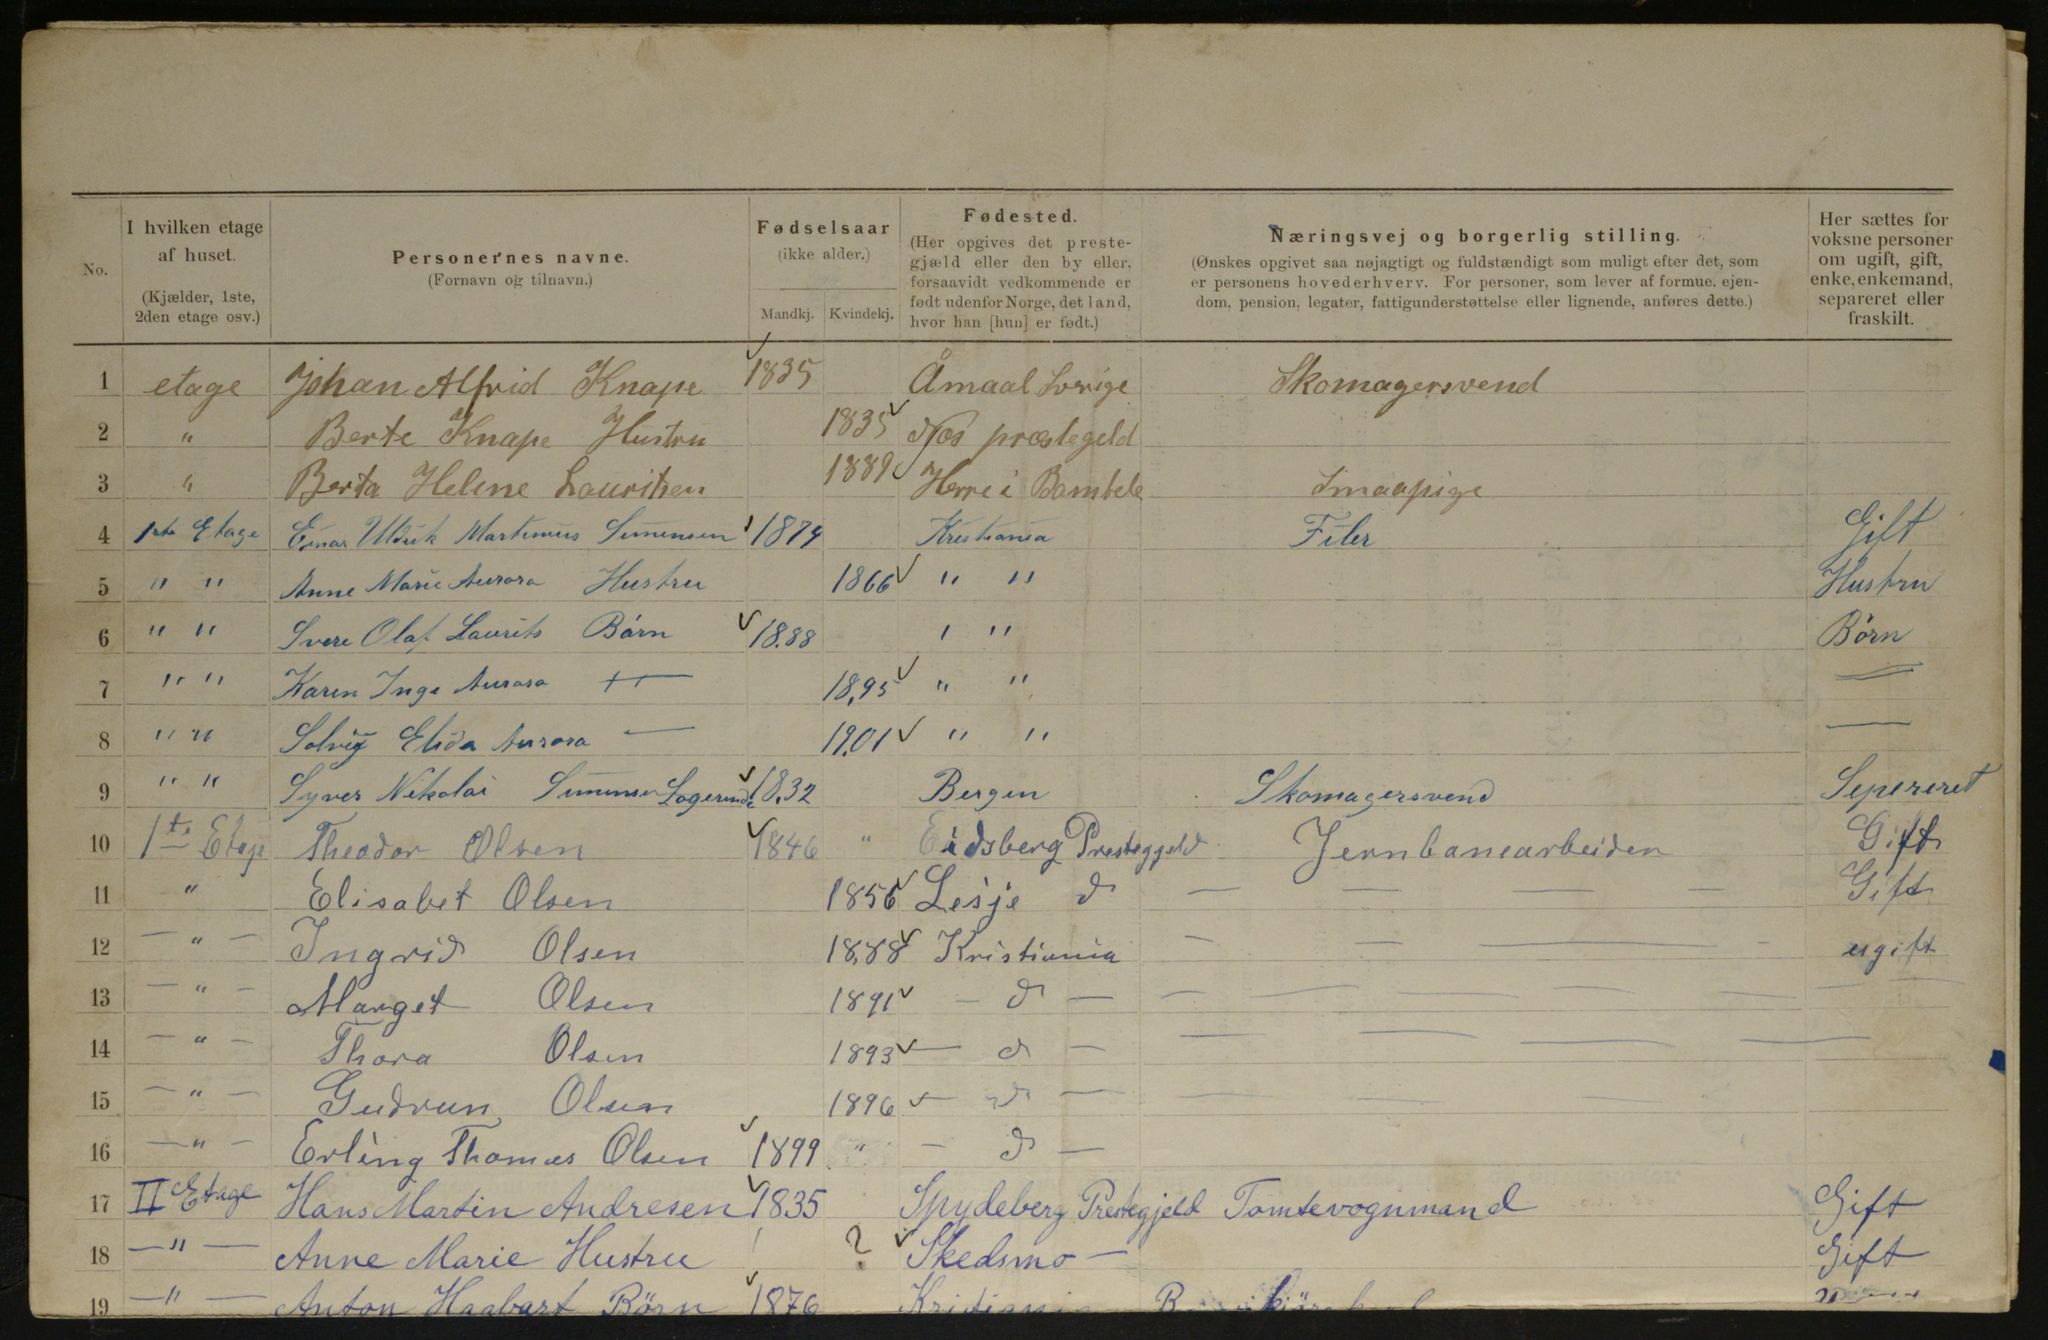 No.
I hvilken etage af huset. (Kjælder, 1ste, 2den etage osv.)
Personernes navne. (Fornavn og tilnavn.)
Fødselsaar (ikke alder.) Mandkj. Kvindekj.
Fødested. (Her opgives det prestegjæld eller den by eller, forsaavidt vedkommende er født udenfor Norge, det land, hvor han [hun] er født.)
Næringsvej og borgerlig stilling. (Ønskes opgivet saa nøjagtigt og fuldstændigt som muligt efter det, som er personens hovederhverv. For personer, som lever af formue, ejendom, pension, legater, fattigunderstøttelse eller lignende, anføres dette.)
Her sættes for voksne personer om ugift, gift, enke, enkemand, separeret eller fraskilt.
1 etage Johan Alfrid Knape 1835 Åmaal Sverige Skomagersvend
2 " Berte Knape Hustru 1835 Næs præstegeld
3 " Berta Helene Lauritsen 1889 Herre i Bambele Smaapige
4 1ste Etage Einar Uldrik Martinius Simensen 1874 Kristiania Filer Gift
5 " " Anne Marie Aurora Hustru 1866 " " Hustru
6 " " Svere Olaf Laurits Börn 18.88 " " Börn
7 " " Karen Inga Aurora — 18.95 " " —
8 " " Solvig Elida Aurora — 19.01 " " —
9 " " Syver Nikolai Simensen Logerende 18.32 Bergen Skomagersvend Sepereret
10 1ts Etage Theodor Olsen 1846 " Eidsberg Presteggeld Jernbanearbeider Gift
11 " Elisabet Olsen 1856 Lesje d — — — — Gift
12 — " — Ingrid Olsen 18.88 Kristiania — — — — ugift
13 — " — Marget Olsen 1891 — d — — — — — — —
14 — " — Thora Olsen 1893 — d — — — — —
15 — " — Gudrun Olsen 1896 — d — — — — —
16 — " — Erling Thomas Olsen 1899 " — d —
17 II Etage Hans Martin Andresen 1835 Spydeberg Prestegjeld Tomtevognmand Gift
18 — " — Anne Marie Hustru ? Skedsmo — Gift
19 — " — Anton Haabart Börn 1876 Kristiania